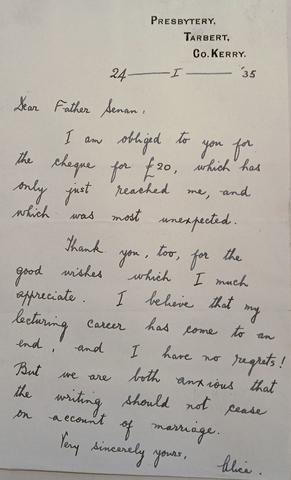 PRESBYTERY,
TARBERT,
CO. KERRY.
24 — I — '35
Dear Father Senan,
I am obliged to you for
the cheque for £20, which has
only just reached me, and
which was most unexpected.
Thank you, too, for the
good wishes which I much
appreciate. I believe that my
lecturing career has come to an
end, and I have no regrets!
But we are both anxious that
the writing should not cease
on account of marriage.
Very sincerely yours,
Alice.